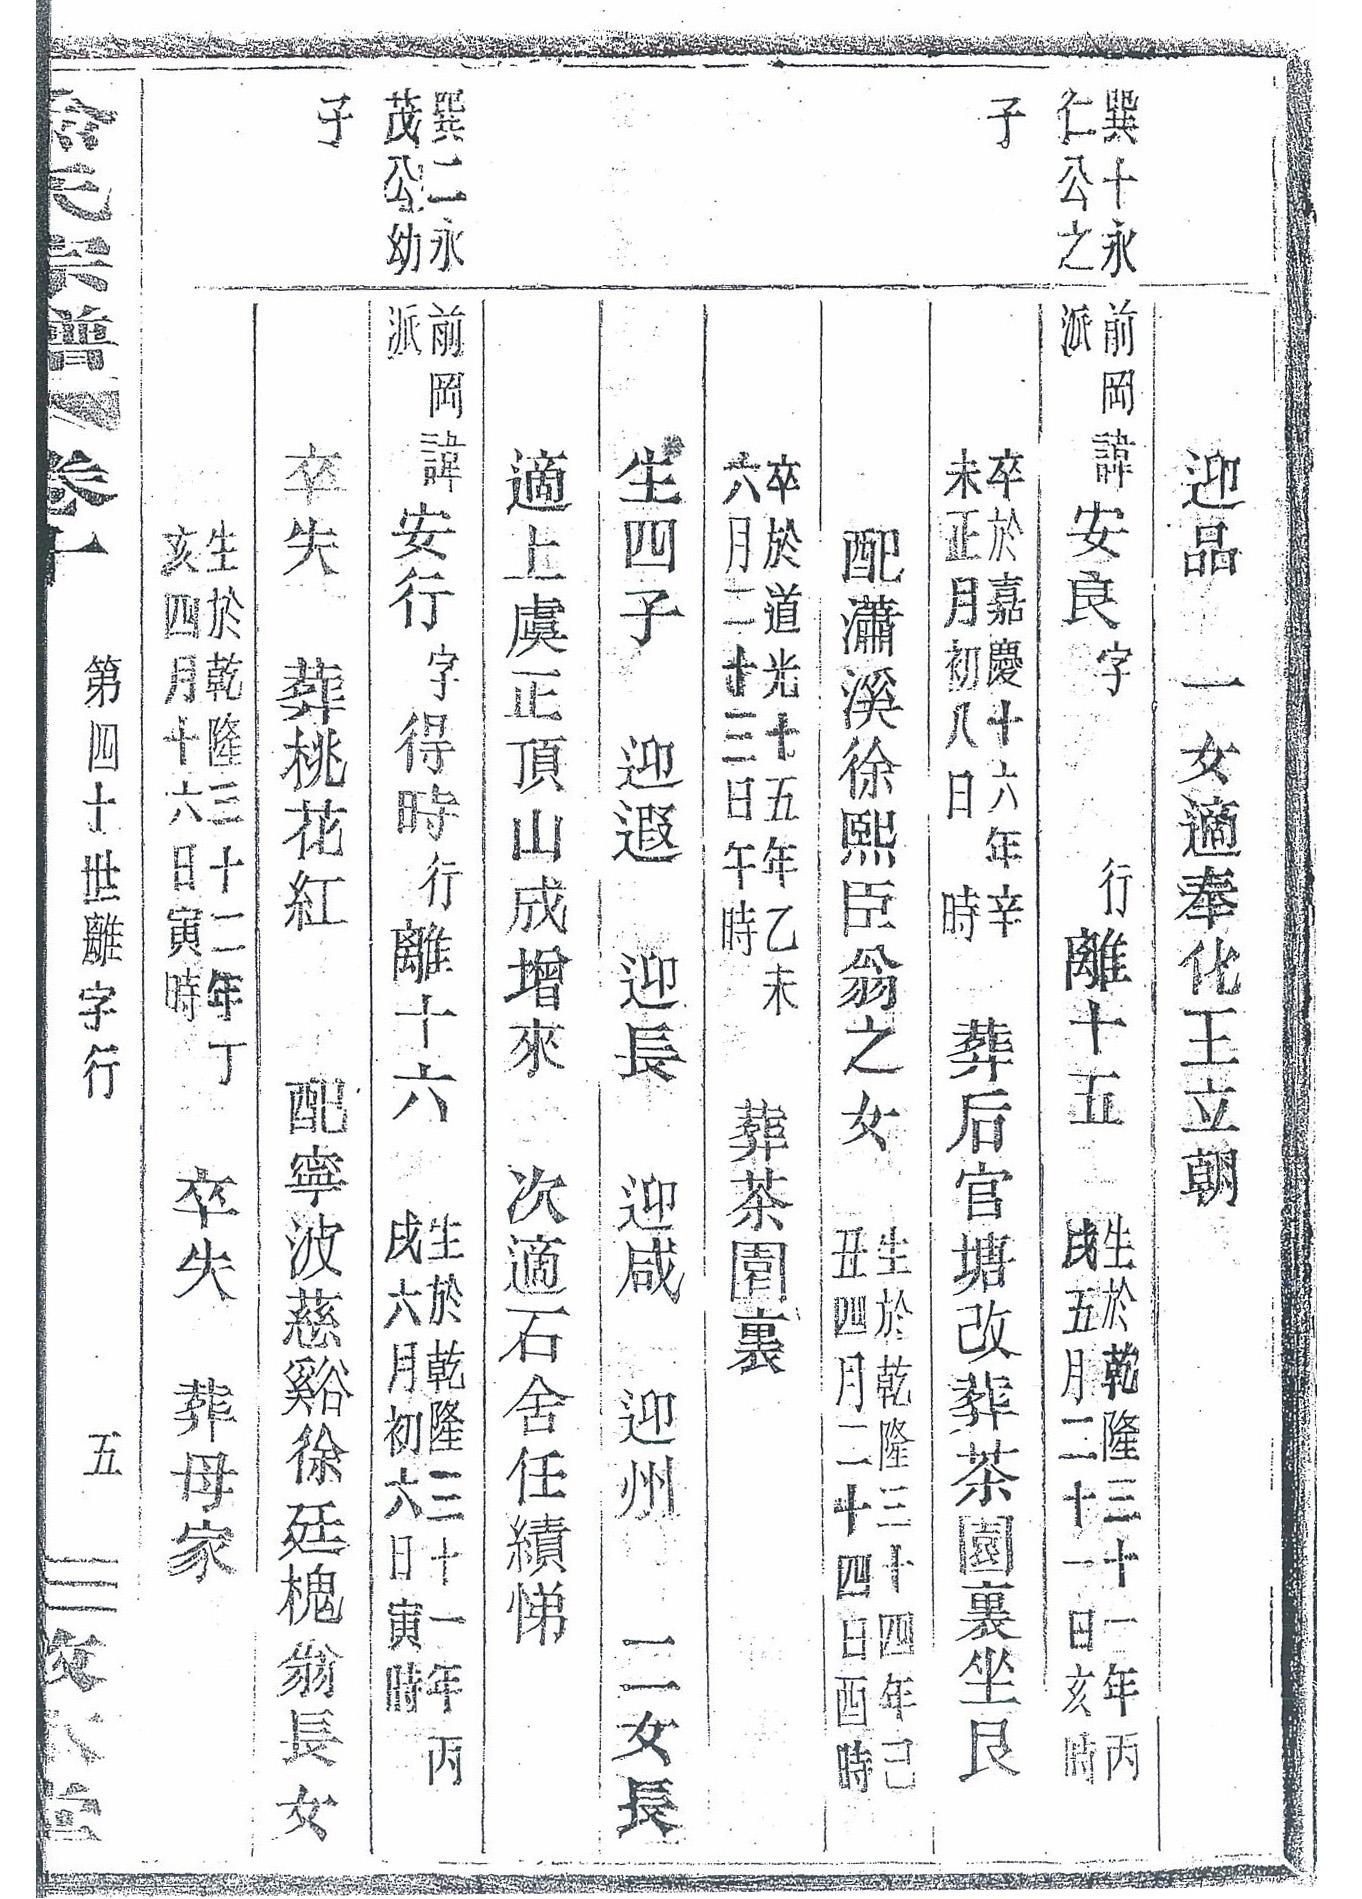 迎品　一女適奉化王立朝
巽十永
仁公之
子
前岡諱安良字　行離十五　生於乾隆三十一年丙
派　戌五月二十一日亥時
卒於嘉慶十六年辛
未正月初八日　時　葬后官塘改葬茶園裏坐艮
配瀟溪徐熙臣翁之女　生於乾隆三十四年己
丑四月二十四日酉時
卒於道光十五年乙未
六月二十三日午時　葬茶園裏
生四子　迎遐　迎長　迎咸　迎州　二女長
適上虞正頂山成增來　次適石舍任績悌
巽二永
茂公幼
子
前岡諱安行字得時行離十六　生於乾隆三十一年丙
派　戌六月初六日寅時
卒失　葬桃花紅　配寧波慈谿徐廷槐翁長女
生於乾隆三十二年丁
亥四月十六日寅時　卒失　葬母家
氏宗譜　卷十　第四十世離字行　五